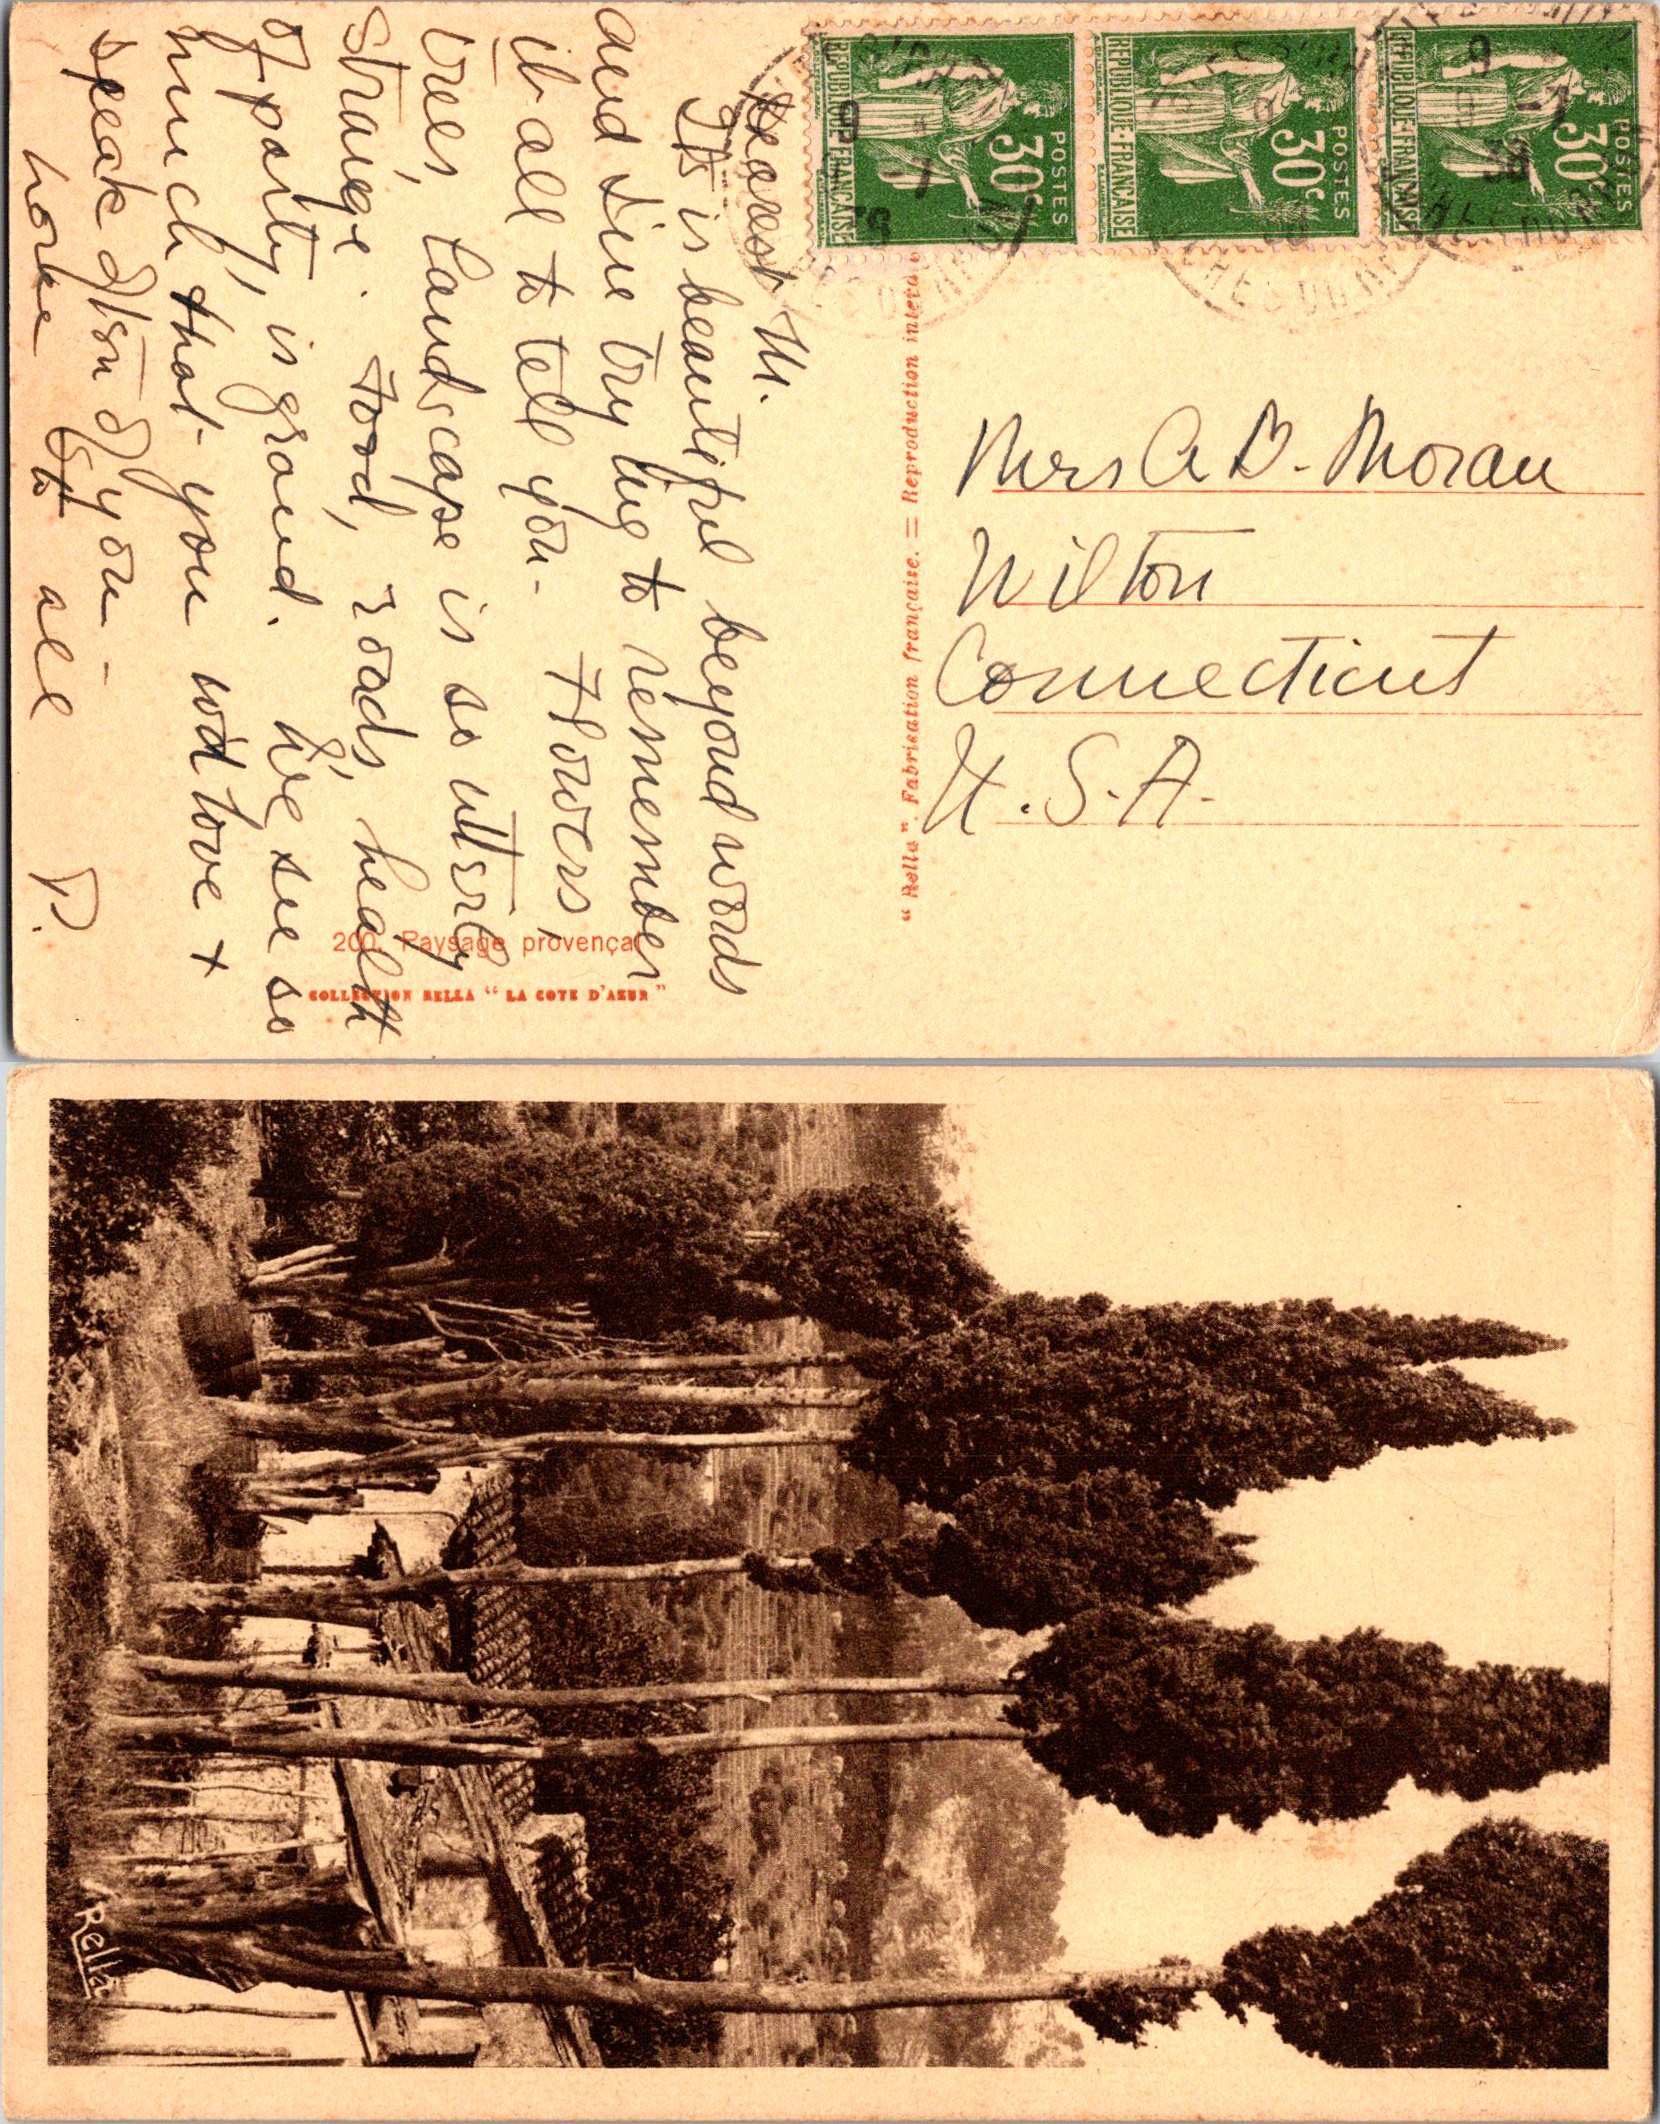 Dearest M.
It is beautiful beyond words
and I'm trying to remember
it all to tell you - Flowers,
trees, landscape is so utterly
strange. Food, roads, health
of party, is grand. We see so
much that you wod love &
speak often of you -
Love to all
P.
200. Paysage provençal
COLLECTION RELLA "LA COTE D'AZUR"
"Rella". Fabrication française. = Reproduction interd
POSTES
30c
REPUBLIQUE FRANÇAISE
POSTES
30c
REPUBLIQUE FRANÇAISE
POSTES
30c
REPUBLIQUE FRANÇAISE
Mrs A B. Moran
Wilton
Connecticut
U.S.A.
Rella